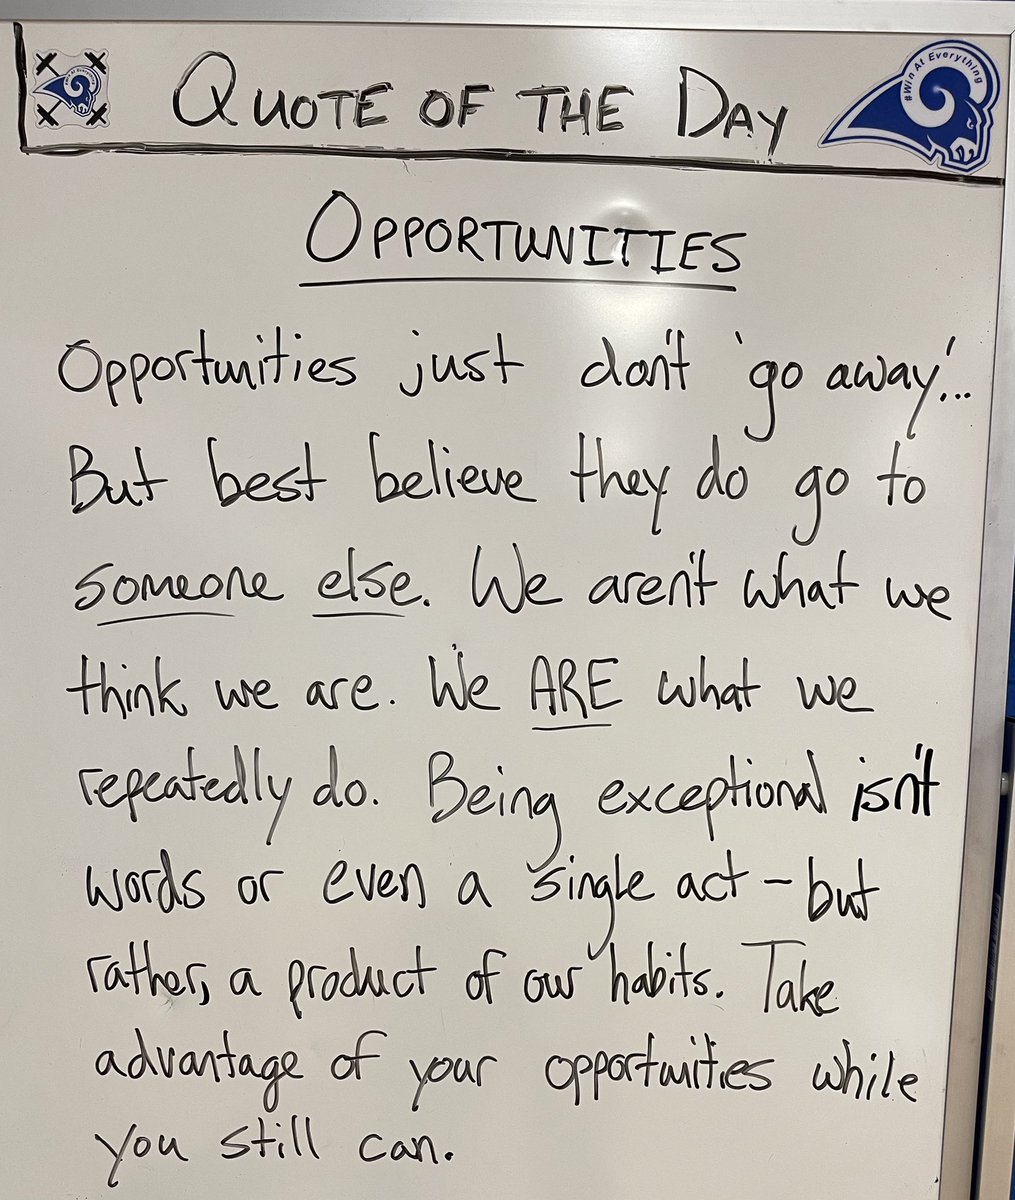 QUOTE OF THE DAY
#Win At Everything
OPPORTUNITIES
Opportunities just don't 'go away'...
But best believe they do go to
someone else. We aren't what we
think we are. We ARE what we
repeatedly do. Being exceptional isn't
words or even a single act - but
rather, a product of our habits. Take
advantage of your opportunities while
you still can.